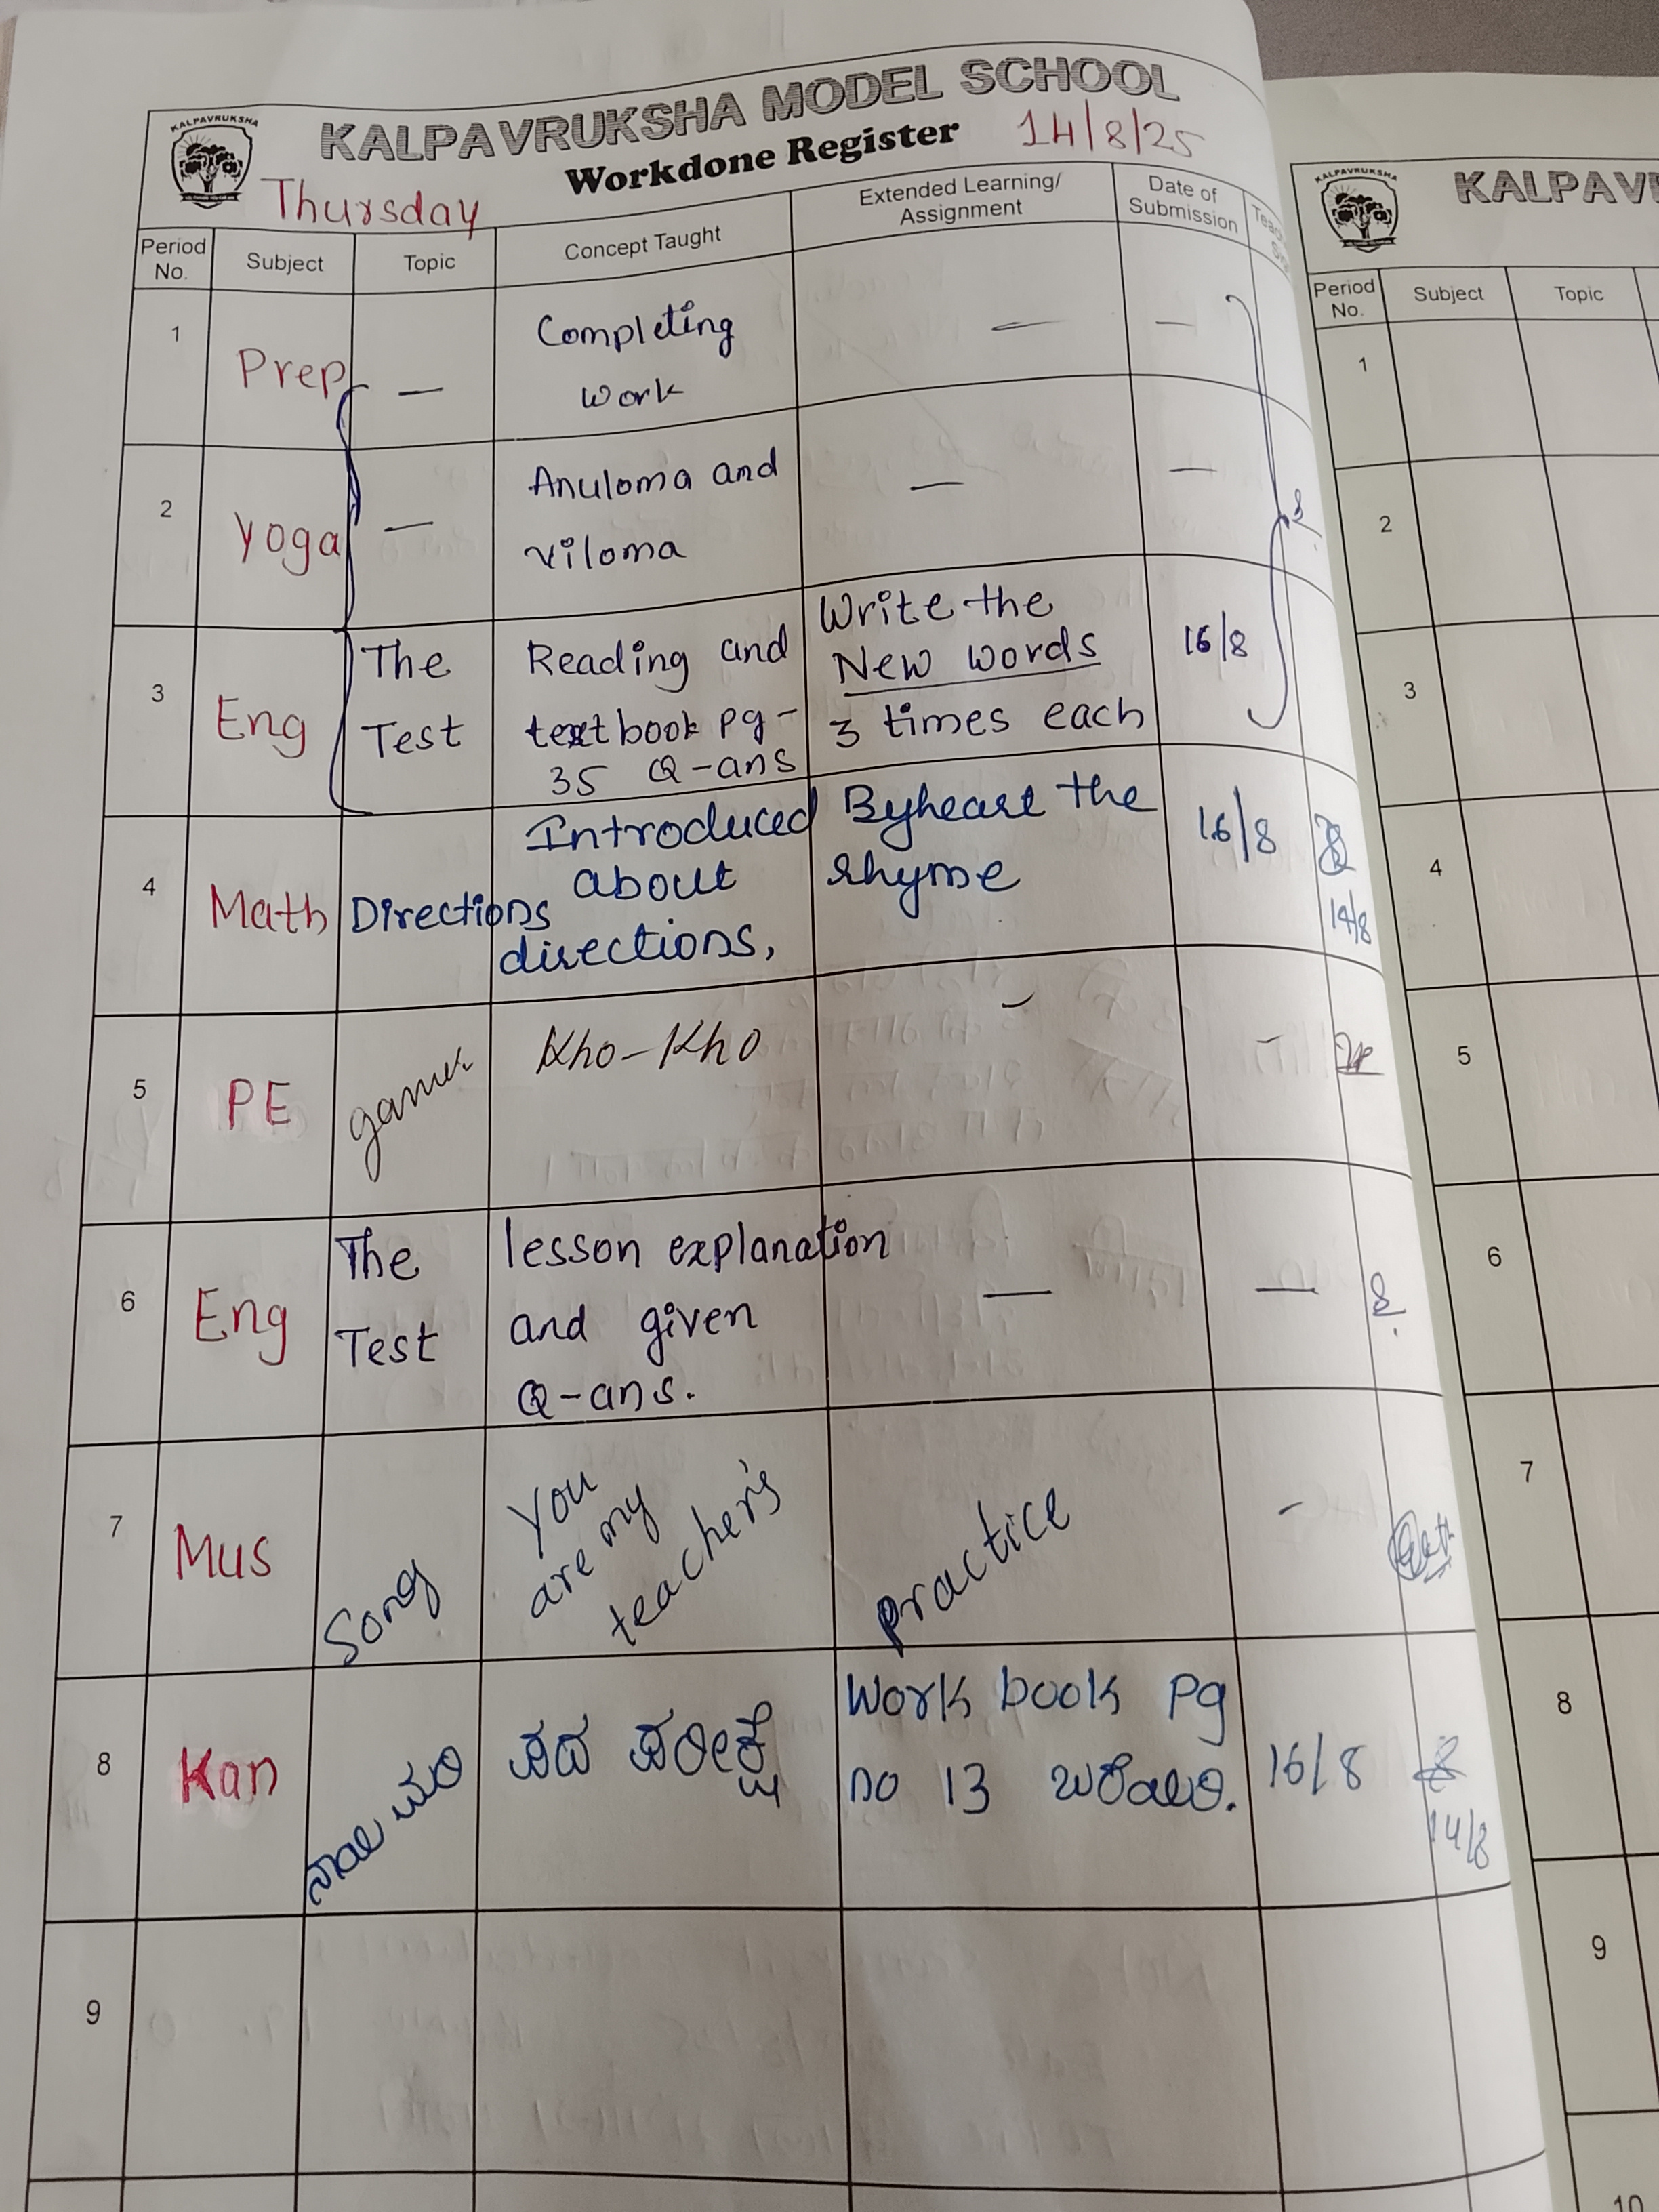 KALPAVRUKSHA
KALPAVRUKSHA MODEL SCHOOL
Workdone Register
14/8/25
Thursday
Period No.
Subject
Topic
Concept Taught
Extended Learning/
Assignment
Date of
Submission
1
Prep
—
Completing
work
—
—
2
Yoga
—
Anuloma and
viloma
—
—
3
Eng
The
Test
Reading and
textbook pg-
35 Q-ans
Write the
New words
3 times each
16/8
4
Math
Directions
Introduced
about
directions,
Byheart the
rhyme
16/8
14/8
5
PE
games
Kho-Kho
-
-
6
Eng
The
Test
lesson explanation
and given
Q-ans.
—
—
7
Mus
Song
You
are my
teacher's
practice
-
8
Kan
ಪದ ಪರೀಕ್ಷೆ
Work book Pg
no 13
16/8
14/8
9
KALPAVRUKSHA
Period
No.
Subject
Topic
1
2
3
4
5
6
7
8
9
10